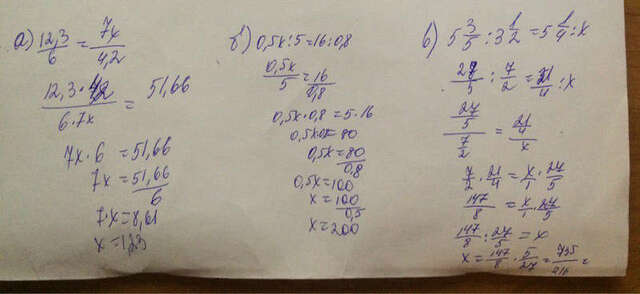 а) 12,3/6 = 7x/4,2
12,3·4,2/6·7x = 51,66
7x·6 = 51,66
7x = 51,66/6
7·x = 8,61
x = 1,23
б) 0,5x:5=16:0,8
0,5x/5 = 16/0,8
0,5x·0,8 = 5·16
0,5x = 80/0,8
0,5x = 100
x = 100/0,5
x = 200
в) 5 3/5 : 3 1/2 = 5 1/4 : x
: 7/2 = 21/4 : x
27/5 / 7/2 = 21/4 / x
7/2 · 21/4 = x/1 · 27/5
147/8 = x/1 · 27/5
147/8 : 27/5 = x
x = 147/8 · 5/27 = 735/216 =